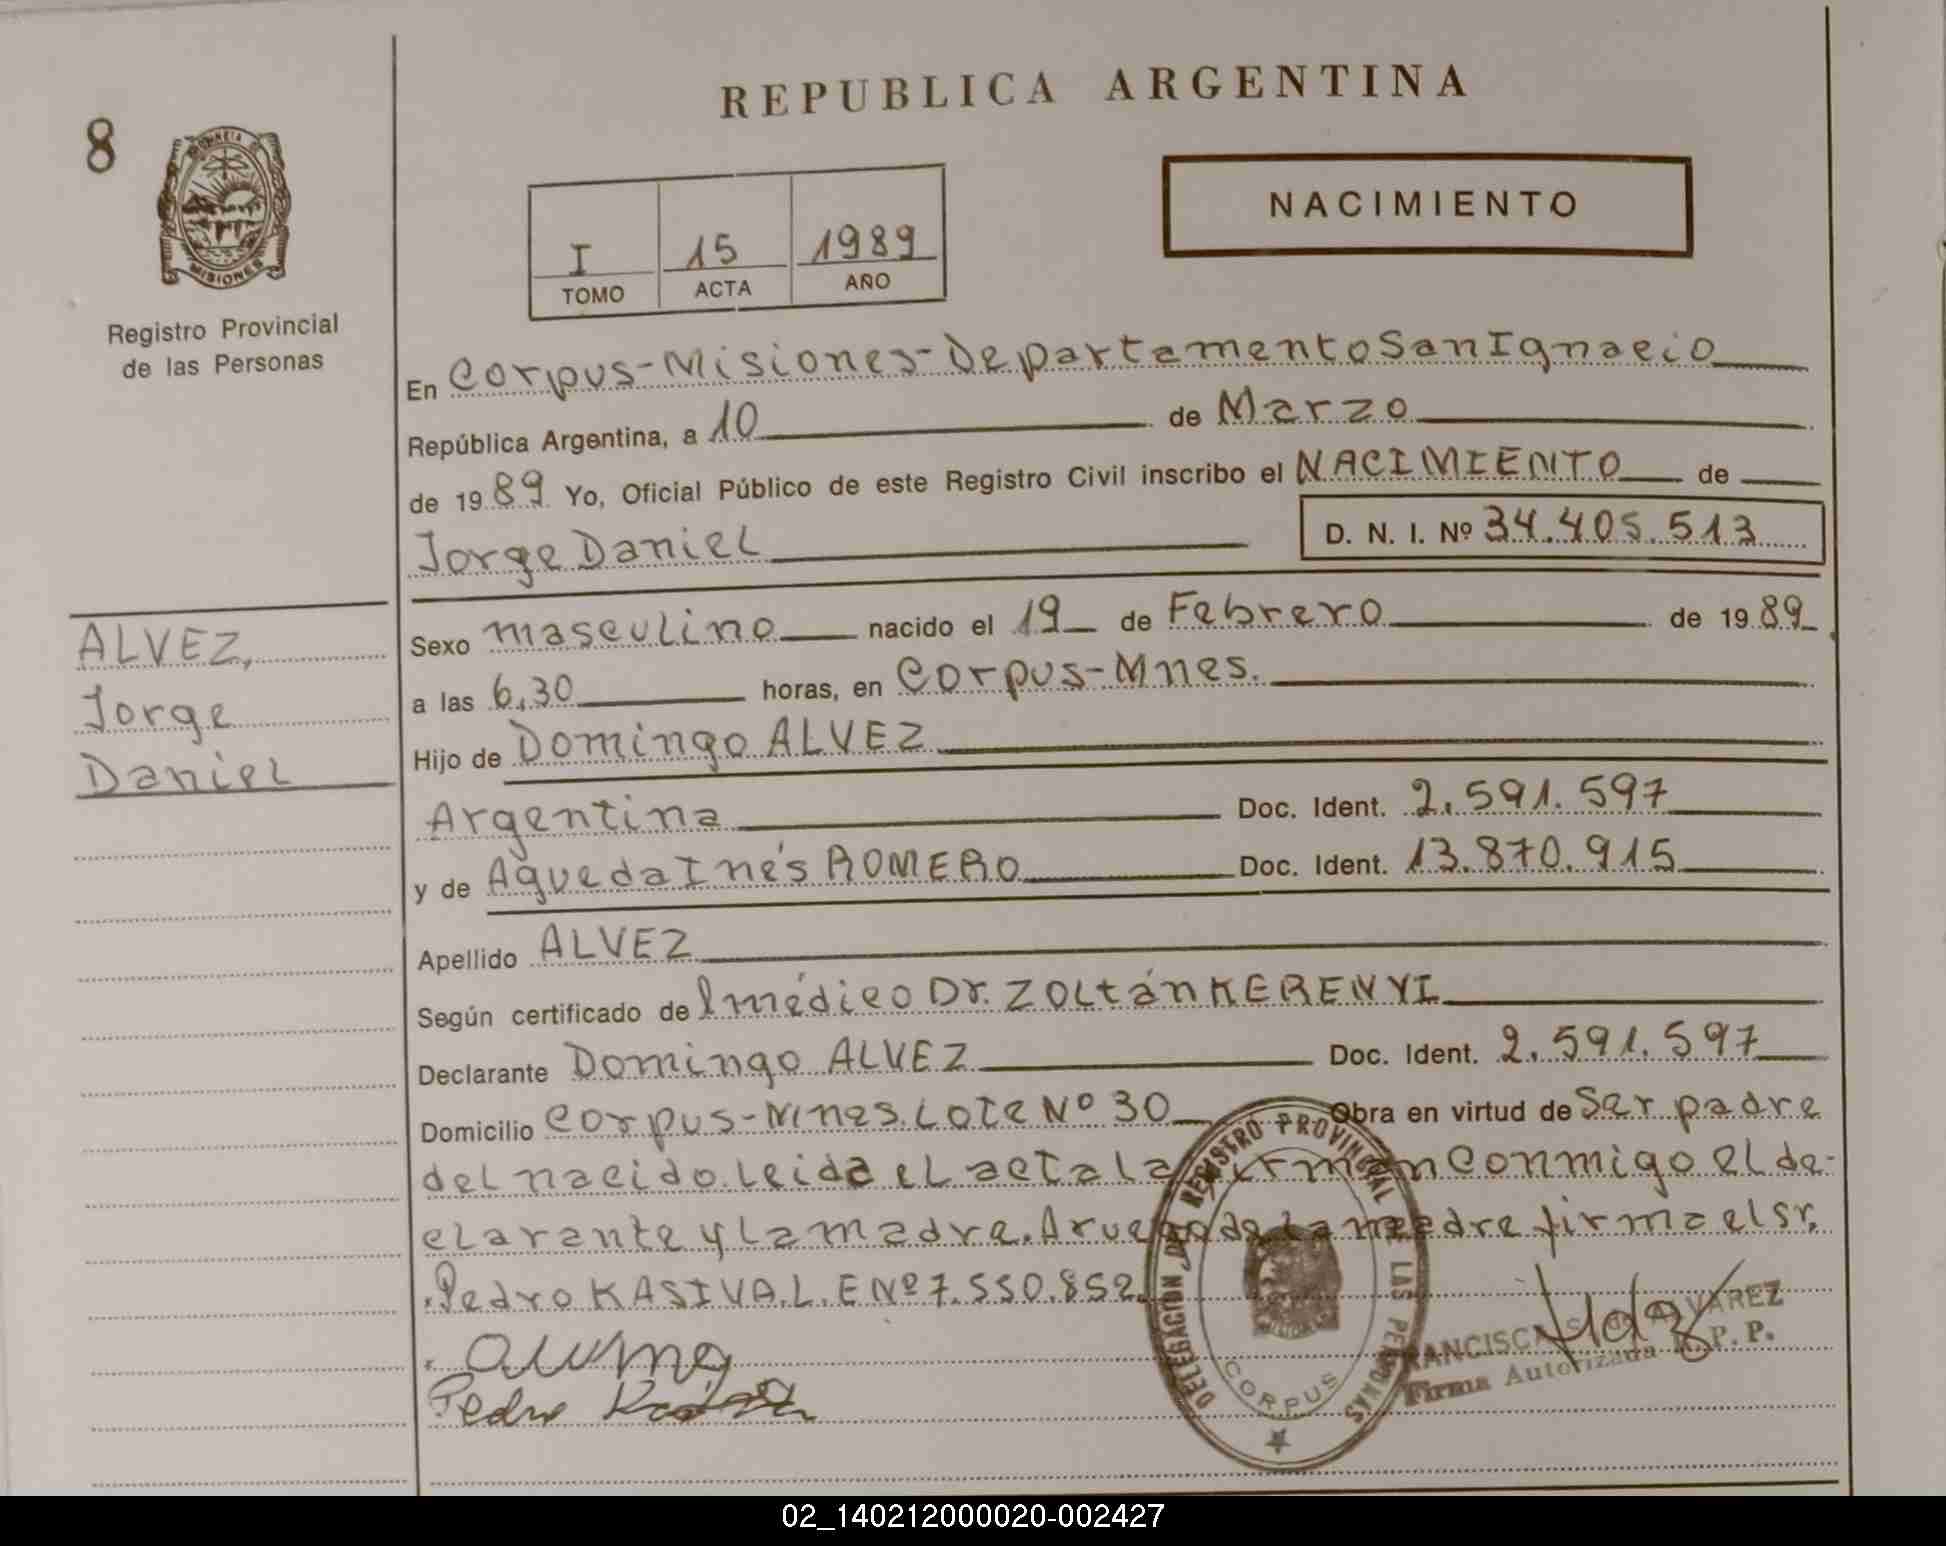 REPUBLICA ARGENTINA
8
PROVINCIA DE
MISIONES
Registro Provincial
de las Personas
NACIMIENTO
I 15 1989
TOMO ACTA AÑO
En Corpus-Misiones-Departamento San Ignacio
República Argentina, a 10 de Marzo
de 1989 Yo, Oficial Público de este Registro Civil inscribo el NACIMIENTO de
Jorge Daniel D. N. I. Nº 34.405.513
ALVEZ,
Jorge
Daniel
Sexo masculino nacido el 19 de Febrero de 1989
a las 6,30 horas, en Corpus-Mnes.
Hijo de Domingo ALVEZ
Argentina Doc. Ident. 2.591.597
y de Agueda Inés ROMERO Doc. Ident. 13.870.915
Apellido ALVEZ
Según certificado del médico Dr. ZOLtán KERENYI
Declarante Domingo ALVEZ Doc. Ident. 2.591.597
Domicilio Corpus-Mnes. Lote Nº 30 Obra en virtud de Ser padre
del nacido. Leida el acta la firman conmigo el de-
clarante y la madre. A ruego de la madre firma el sr.
Pedro KASIVA. L. E Nº 7.550.852.
Pedro
DELEGACION DEL REGISTRO PROVINCIAL DE LAS PERSONAS
CORPUS
FRANCISCA S. de ALVAREZ
Firma Autorizada R.P.P.
02_140212000020-002427